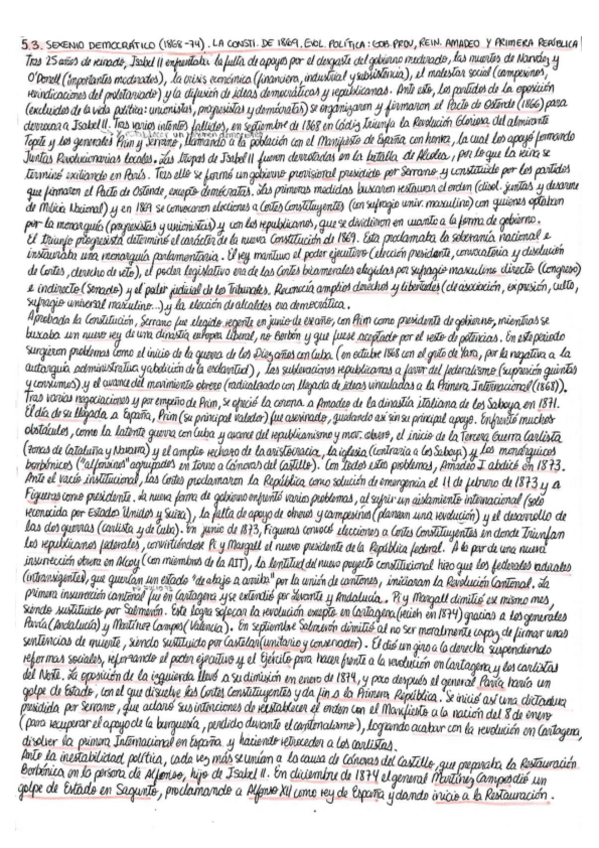 5.3. SEXENIO DEMOCRÁTICO (1868-74). LA CONSTI. DE 1869. EVOL. POLÍTICA: GOB. PROV, REIN. AMADEO Y PRIMERA REPÚBLICA
Tras 25 años de reinado, Isabel II enfrentaba la falta de apoyo por el desgaste del gobierno moderado, las muertes de Narváez y
O'Donell (importantes moderados), la crisis económica (financiera, industrial y subsistencia), el malestar social (campesinos,
reivindicaciones del proletariado) y la difusión de ideas democráticas y republicanas. Ante esto, los partidos de la oposición
(excluidos de la vida política: unionistas, progresistas y demócratas) se organizaron y firmaron el Pacto de Ostende (1866) para
derrocar a Isabel II. Tras varios intentos fallidos, en septiembre de 1868 en Cádiz triunfa la Revolución Gloriosa del almirante
Topete y los generales Prim y Serrano, llamando a la población con el Manifiesto de España con honra, la cual los apoyó formando
Juntas Revolucionarias locales. Las tropas de Isabel II fueron derrotadas en la batalla de Alcolea, por lo que la reina se
terminó exiliando en París. Tras ello se formó un gobierno provisional presidido por Serrano y constituido por los partidos
que firmaron el Pacto de Ostende, excepto demócratas. Las primeras medidas buscaron restaurar el orden (disol. juntas y desarme
de Milicia Nacional) y en 1869 se convocaron elecciones a Cortes Constituyentes (con sufragio univ. masculino) con quienes optaban
por la monarquía (progresistas y unionistas) y con los republicanos, que se dividieron en cuanto a la forma de gobierno.
El triunfo progresista determinó el carácter de la nueva Constitución de 1869. Esta proclamaba la soberanía nacional e
instauraba una monarquía parlamentaria. El rey mantuvo el poder ejecutivo (elección presidente, convocatoria y disolución
de Cortes, derecho de veto), el poder legislativo era de las Cortes bicamerales elegidas por sufragio masculino directo (Congreso)
e indirecto (Senado) y el poder judicial de los Tribunales. Reconocía amplios derechos y libertades (de asociación, expresión, culto,
sufragio universal masculino...) y la elección de alcaldes era democrática.
Aprobada la Constitución, Serrano fue elegido regente en junio de ese año, con Prim como presidente de gobierno, mientras se
buscaba un nuevo rey de una dinastía europea liberal, no Borbón y que fuese aceptado por el resto de potencias. En este periodo
surgieron problemas como el inicio de la guerra de los Diez años con Cuba (en octubre 1868 con el grito de Yara, por la negativa a la
autarquía administrativa y abolición de la esclavitud), las sublevaciones republicanas a favor del federalismo (supresión quintas
y consumos) y el avance del movimiento obrero (radicalizado con llegada de ideas vinculadas a la Primera Internacional (1868)).
Tras varias negociaciones y por empeño de Prim, se ofreció la corona a Amadeo de la dinastía italiana de los Saboya en 1871.
El día de su llegada a España, Prim (su principal valedor) fue asesinado, quedando así sin su principal apoyo. Enfrentó muchos
obstáculos, como la latente guerra con Cuba y avance del republicanismo y mov. obrero, el inicio de la Tercera Guerra Carlista
(zonas de Cataluña y Navarra) y el amplio rechazo de la aristocracia, la iglesia (contraria a los Saboya) y los monárquicos
borbónicos ("alfonsinos" agrupados en torno a Cánovas del Castillo). Con todos estos problemas, Amadeo I abdicó en 1873.
Ante el vacío institucional, las Cortes proclamaron la República como solución de emergencia el 11 de febrero de 1873 y a
Figueras como presidente. La nueva forma de gobierno enfrentó varios problemas, al sufrir un aislamiento internacional (solo
reconocida por Estado Unidos y Suiza), la falta de apoyo de obreros y campesinos (planean una revolución) y el desarrollo de
las dos guerras (carlista y de Cuba). En junio de 1873, Figueras convocó elecciones a Cortes Constituyentes en donde triunfan
los republicanos federales, convirtiéndose Pi y Margall el nuevo presidente de la República federal. A la par de una nueva
insurrección obrera en Alcoy (con miembros de la AIT), la lentitud del nuevo proyecto constitucional hizo que los federales radicales
(intransigentes), que querían un estado "de abajo a arriba" por la unión de cantones, iniciaran la Revolución Cantonal. La
primera insurrección cantonal fue en Cartagena y se extendió por Levante y Andalucía. Pi y Margall dimitió ese mismo mes,
siendo sustituido por Salmerón. Este logra sofocar la revolución excepto en Cartagena (recién en 1874) gracias a los generales
Pavía (Andalucía) y Martínez Campos (Valencia). En septiembre Salmerón dimitió al no ser moralmente capaz de firmar unas
sentencias de muerte, siendo sustituido por Castelar (unitario y conservador). Él dió un giro a la derecha suspendiendo
reformas sociales, reforzando el poder ejecutivo y el Ejército para hacer frente a la revolución en Cartagena y los carlistas
del Norte. La oposición de la izquierda llevó a su dimisión en enero de 1874, y poco después el general Pavía haría un
golpe de Estado, con el que disuelve las Cortes Constituyentes y da fin a la Primera República. Se inició así una dictadura
presidida por Serrano, que aclaró sus intenciones de restablecer el orden con el Manifiesto a la nación del 8 de enero
(para recuperar el apoyo de la burguesía, perdido durante el cantonalismo), logrando acabar con la revolución en Cartagena,
disolver la primera Internacional en España y haciendo retroceder a los carlistas.
Ante la inestabilidad política, cada vez más se unían a la causa de Cánovas del Castillo, que preparaba la Restauración
Borbónica en la persona de Alfonso, hijo de Isabel II. En diciembre de 1874 el general Martínez Campos dió un
golpe de Estado en Sagunto, proclamando a Alfonso XII como rey de España y dando inicio a la Restauración.